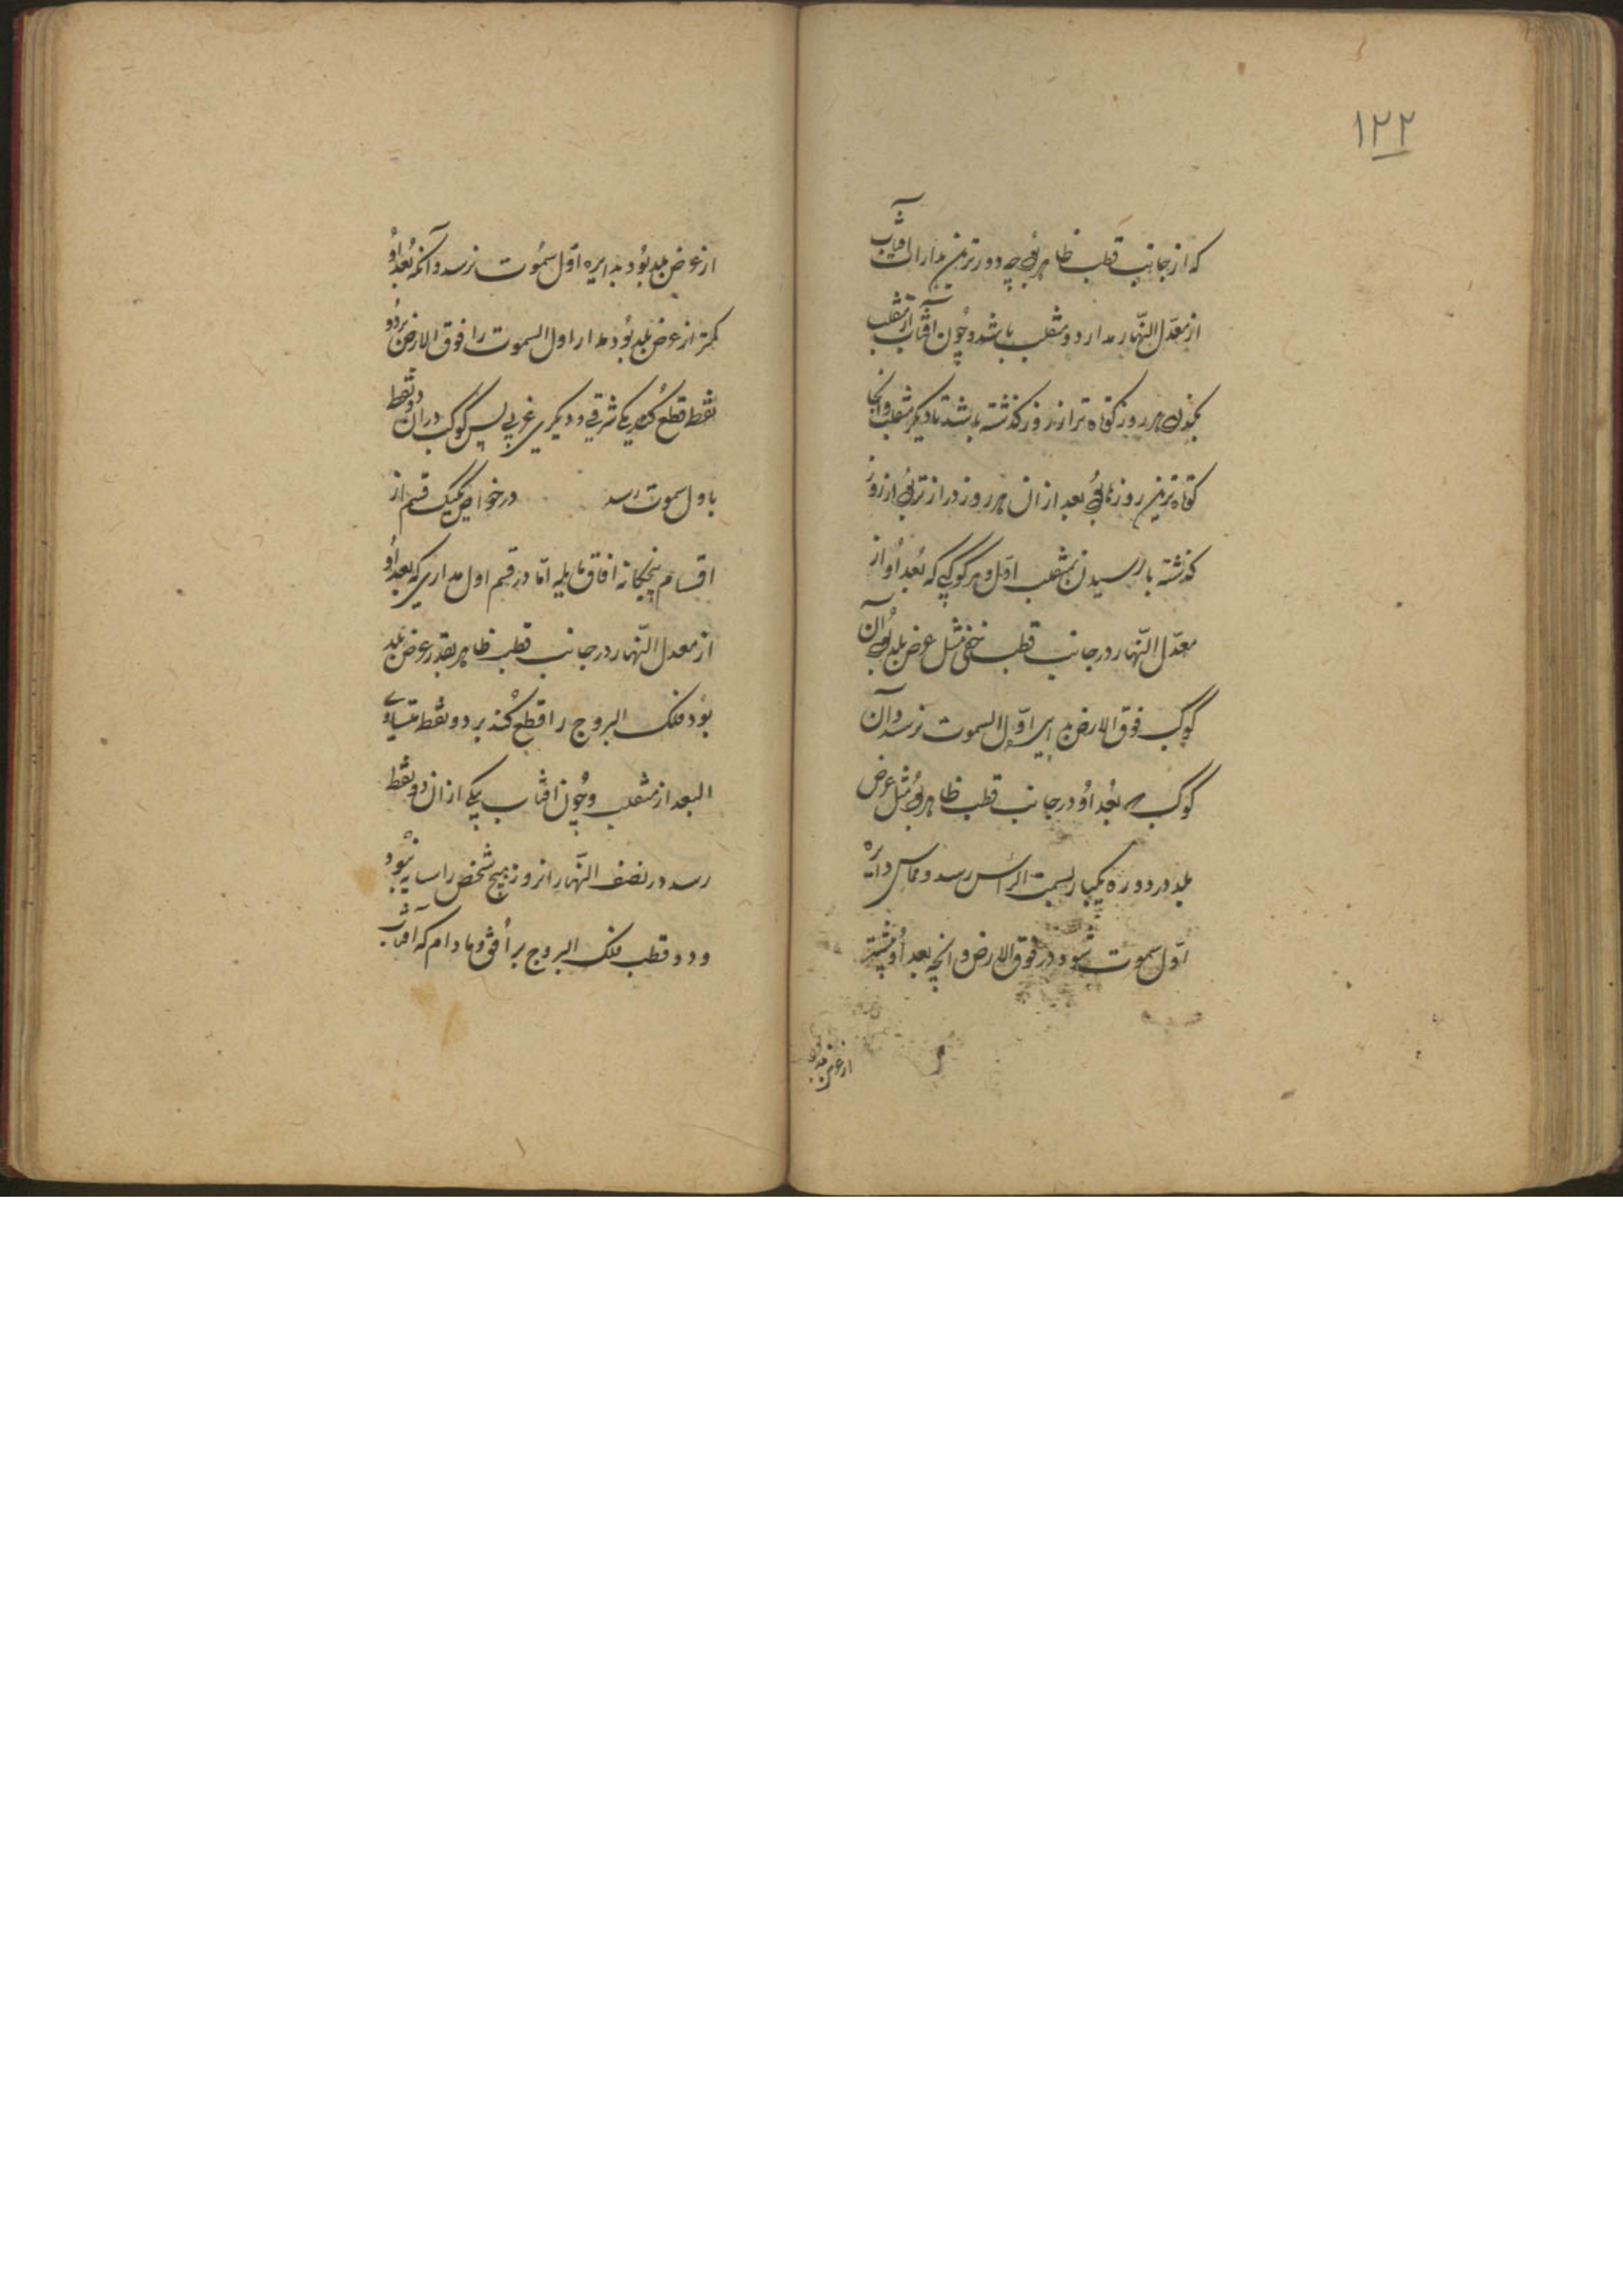 ۱۲۲
که از جانب قطب ظاهر بود چه دورترین مدارات آفتاب
از معدّل النّهار مدار دو منقلب باشد و چُون آفتاب از منقلب
بگذرد هر روز کوتاه تر از روز کذشته باشد تا دیکر منقلب و آنجا
کوتاه ترین روزها بود بعد از ان هر روز دراز تر بود از روز
کذشته تا رسیدن بمنقلب اوّل و هر کوکبی که بُعد اُو از
معدّل النّهار در جانب قطب خفی مثل عرض بلد بُود آن
کوکب فوق الارض بدایره اوّل السموت نرسد و آن
کوکب که بُعد اُو در جانب قطب ظاهر بود مُثل عرض
بلد در دوره یکبار بسمت الرأس رسد و مماس دایره
اوّل سموت شود در فوق الارض و انچه بعد اُو بیشتر
از عرض بلد
از عرض بلد بُود بدایره اوّل سمُوت نرسد و آنکه بُعد اُو
کمتر از عرض بلد بُود مدار اول السموت را فوق الارض بر دو
نقطه قطع کُند یکی شرقی و دیکری غربی پس کوکب در ان دو نقطه
باول سموت رسد در خواص یک یک قسم از
اقسام پنجکانه افاق مایله امّا در قسم اول مداری که بعد اُو
از معدل النّهار در جانب قطب ظاهر بقدر عرض بلد
بُود فلک البروج را قطع کُند بر دو نقطه متساوی
البعد از منقلب و چُون افتاب بیکی از ان دو نقطه
رسد در نصف النّهار انروز هیچ شخص را سایه نبُود
و دو قطب فلک البروج بر اُفق و ما دام که آفتاب